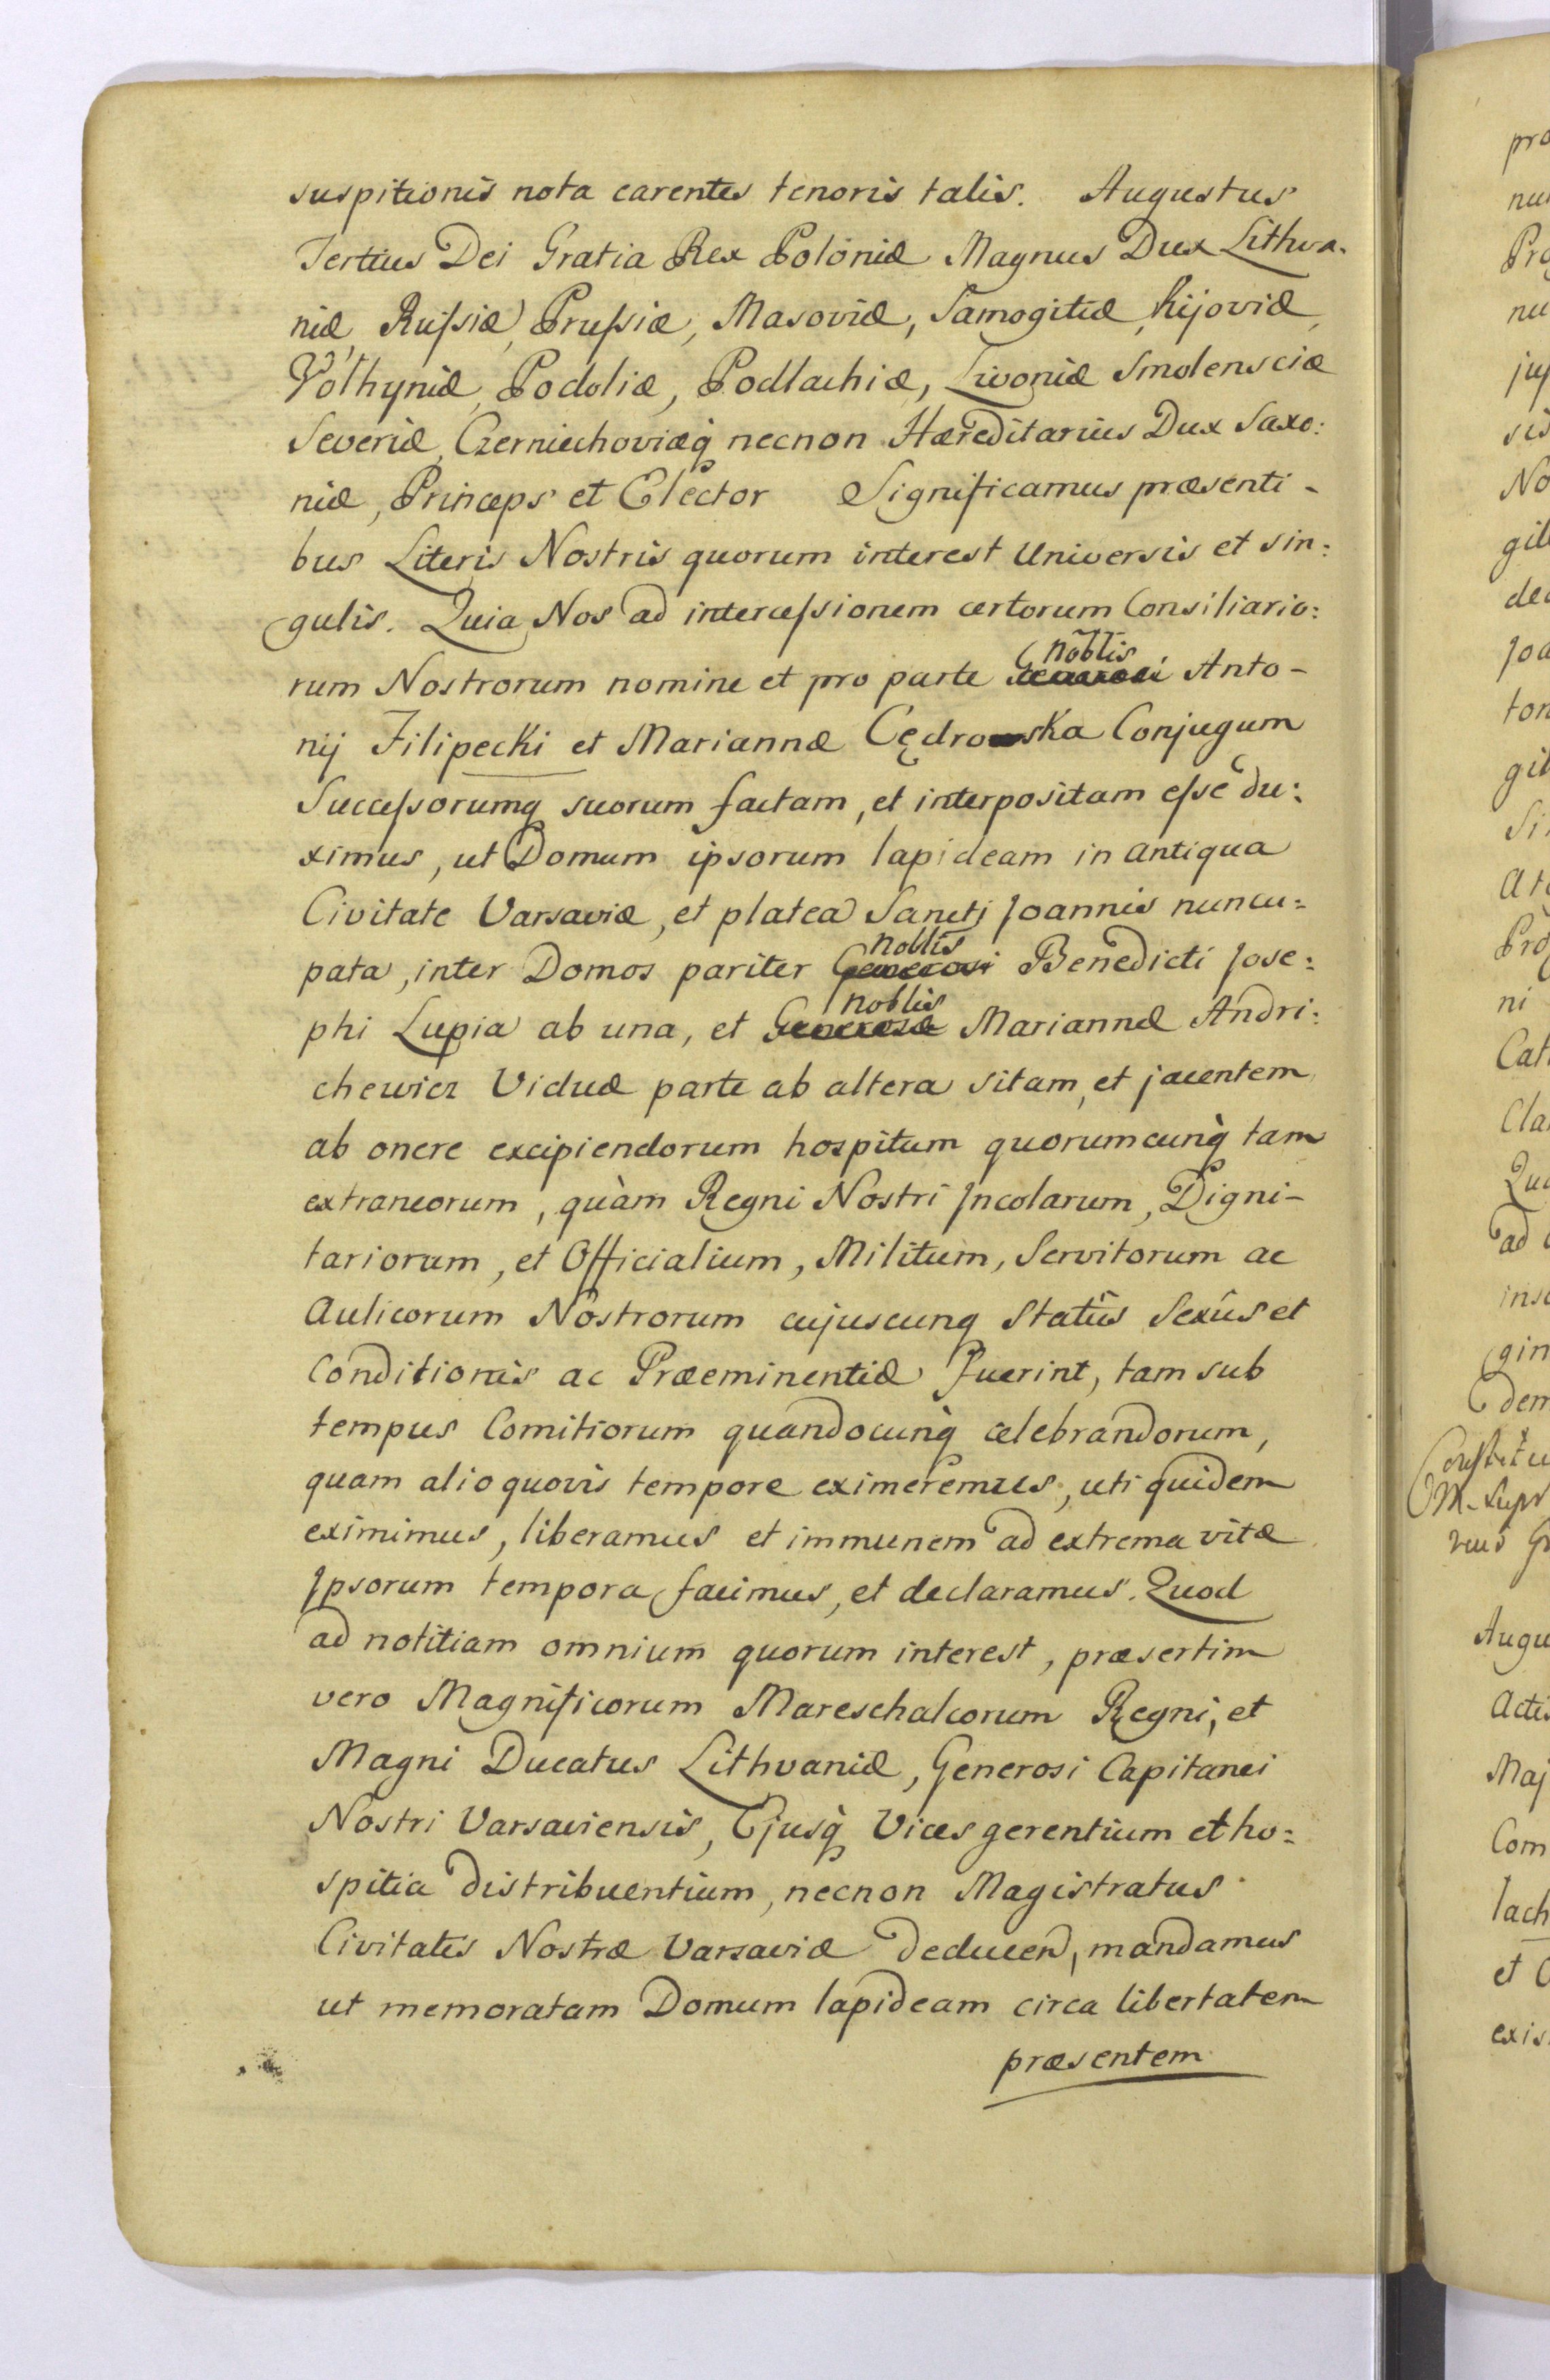 suspitionis nota carentes tenoris talis. Augustus
Tertius Dei Gratia Rex Poloniæ Magnus Dux Lithva-
niæ, Rußiæ, Prußiæ, Masoviæ, Samogitiæ, Kijoviæ,
Volhyniæ, Podoliæ, Podlachiæ, Livoniæ Smolensciæ
Severiæ, Czerniechoviæq̀ necnon Hæreditarius Dux Saxo:
niæ, Princeps et Elector Significamus præsenti-
bus Literis Nostris quorum interest Universis et sin:
gulis. Quia Nos ad interceßionem certorum Consiliario:
rum Nostrorum nomine et pro parte Noblis Anto-
nij Filipecki et Mariannæ Cędrowska Conjugum
Succeßorumq suorum factam, et interpositam eße du:
ximus, ut Domum ipsorum lapideam in antiqua
Civitate Varsaviæ, et platea Sancti Joannis nuncu=
pata, inter Domos pariter Generosi Noblis Benedicti Jose:
phi Lupia ab una, et Generosæ Noblis Mariannæ Andri:
chewicz Viduæ parte ab altera sitam, et jacentem
ab onere excipiendorum hospitum quorumcunq̀ tam
extraneorum, quàm Regni Nostri Incolarum, Digni-
tariorum, et Officialium, Militum, Servitorum ac
Aulicorum Nostrorum cujuscunq Statûs Sexûs et
Conditionis ac Præeminentiæ Fuerint, tam sub
tempus Comitiorum quandocunq̀ celebrandorum,
quam alio quovis tempore eximeremus, uti quidem
eximimus, liberamus et immunem ad extrema vitæ
Ipsorum tempora facimus, et declaramus. Quod
ad notitiam omnium quorum interest, præsertim
vero Magnificorum Mareschalcorum Regni, et
Magni Ducatus Lithvaniæ, Generosi Capitanei
Nostri Varsaviensis, Ejusq̀ Vices gerentium et ho=
spitia distribuentium, necnon Magistratus
Civitatis Nostræ Varsaviæ deducen, mandamus
ut memoratam Domum lapideam circa libertatem
præsentem